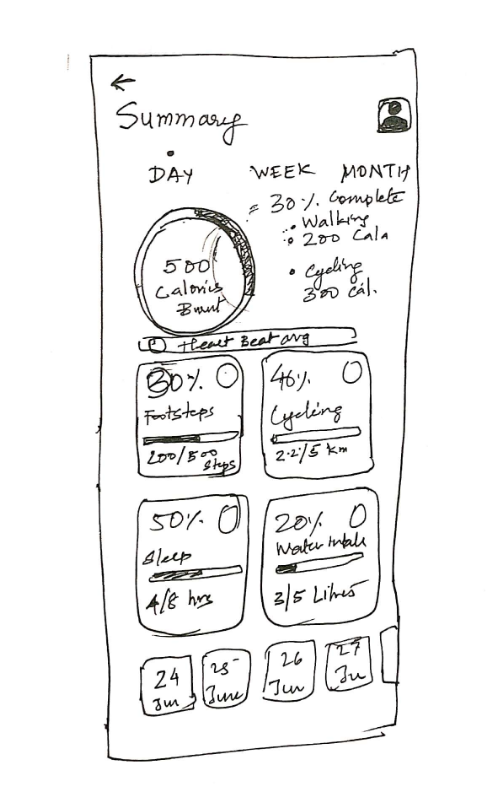 Summary
DAY WEEK MONTH
= 30% Complete
• Walking
• 200 Cala
• Cycling
300 cal.
500
Calories
Burnt
Heart Beat avg
30%
Footsteps
200/500
Steps
46%
Cycling
2.2/5 km
50%
Sleep
4/8 hrs
20%
Water intake
3/5 Litres
24
Jun
25
June
26
Jun
27
Ju